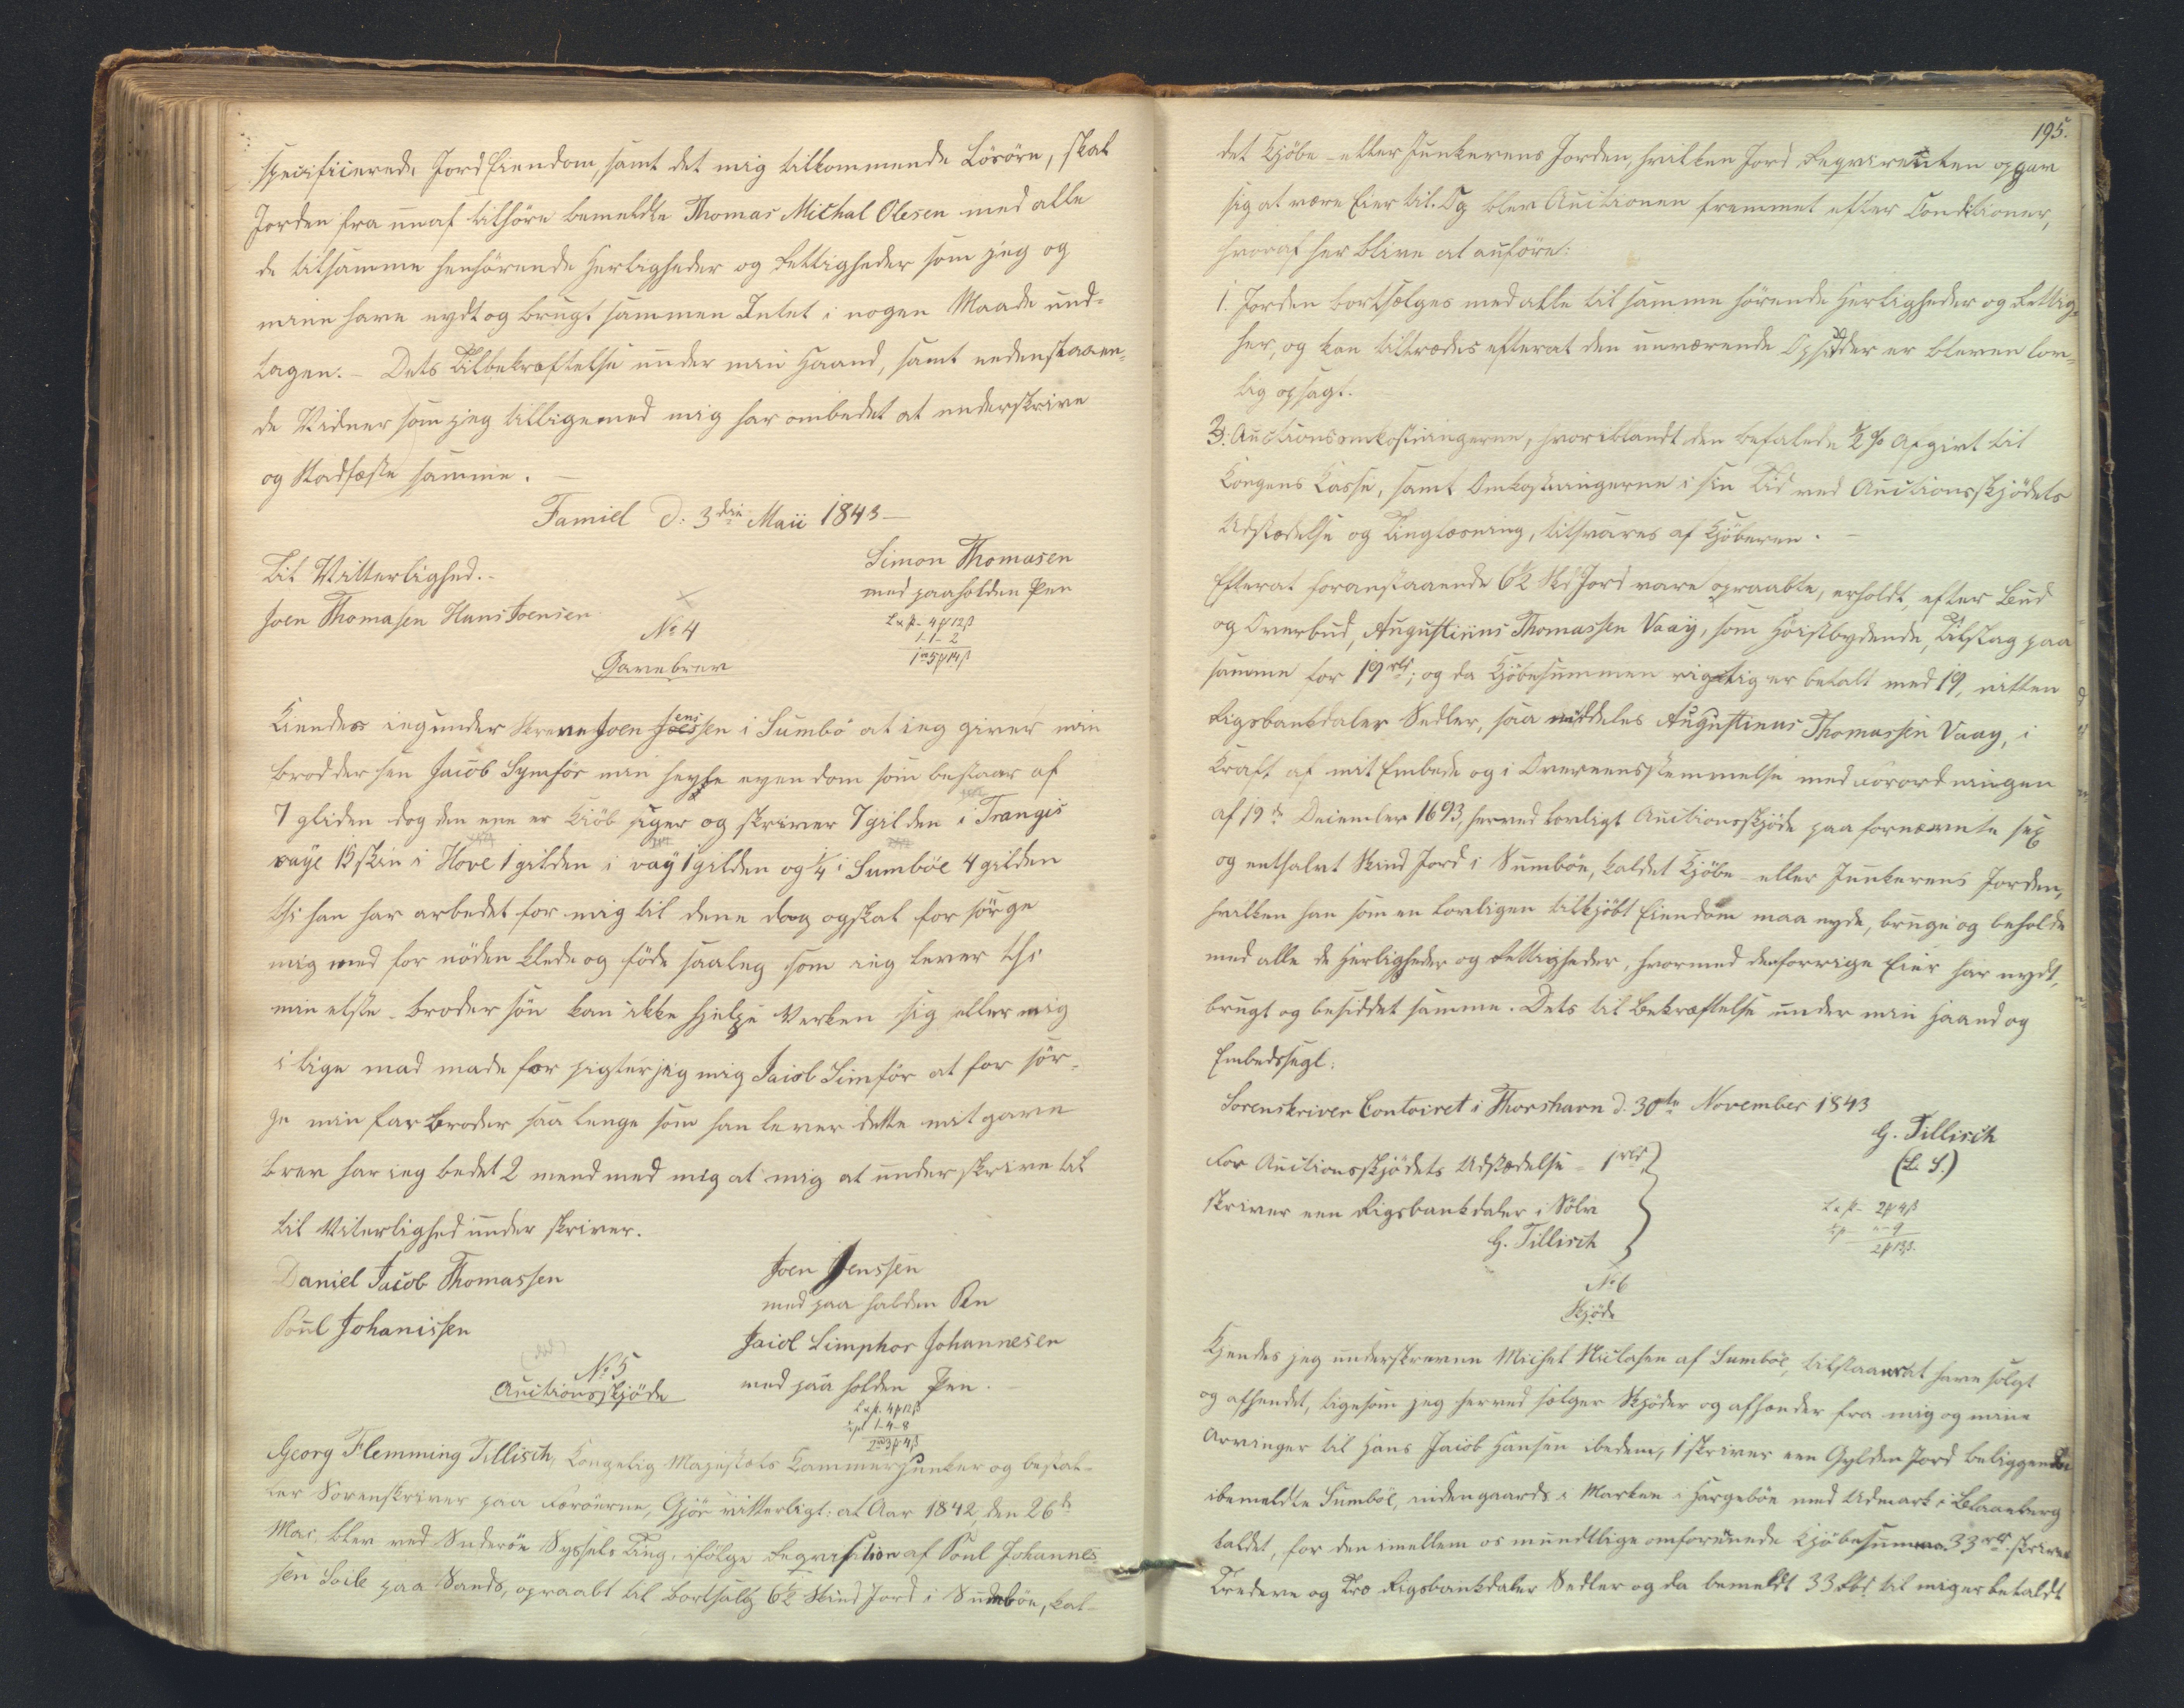 specificerede Jord Eiendom, samt det mig tilkommende Lösöre, skal
Jorden fra nu af tilhöre bemeldte Thomas Michal Olesen med alle
de tilsamme henhörende Herligheder og Rettigheder som jeg og
mine have nydt og brugt sammen Intet i nogen Maade und-
tagen. – Dets Tilbekræftelse under min Haand, samt nedenstaaen-
de Vidner som jeg tilligemed mig har ombedet at underskrive
og Stadfæste samme. –
Famiel d: 3die Maii 1843 –
Til Vitterlighed. –
Simon Thomasen
med paaholden Pen
Joen Thomasen Hans Joensen
4 ƒ 12 ß
1 - 1 - 2
№ 4
Gavebrev
Kiendes ieg under Skrevne Joen Jenssen i Sumbö at ieg giver min
broder sön Jacob Symfor min heyle eyendom som bestaar af
7 gliden dog den ene er Kiöb siger og skriver 7 gilden i Trangis
vaye 15 skin i Hove 1 gilden i vaÿ 1 gilden og 1/4 i Sumböe 4 gilden
thi han har arbedet for mig til dene dag og skal for sörge
mig med for nöden klede og föde saaleng som ieg lever thi
min elste broder sön kan ikke hielpe Verken sig eller mig
i lige mad made for pigter jeg mig Jacob Simför at for sör-
ge min far Broder saa lenge som han lever dette mit gave
brev har ieg bedet 2 mend med mig at mig at under skrive til
til Viterlighed under skriver.
Daniel Jacob Thomassen
Joen Jenssen
med paa halden Pen
Poul Johanissen
Jacol Limphor Johannesen
med paa holden Pen.
№ 5
Auctionsskjöde
4 ƒ 12 ß
1 - 4 - 8
Georg Flemming Tillisch, Kongelig Majestæts Kammerjunker og bestal-
ter Sorenskriver paa Færöerne, Gjör vitterligt: at Aar 1842, den 26de
Mai, blev ved Suderöe Syssels Ting, ifölge Requisition af Poul Johannes
sen paa Sands, opraabt til Bortsalg 6½ Skind Jord i Sumböe, kal-
195.
det Kjöbe- eller Junkerens Jorden, hvilken Jord Reqvirenten opgav
sig at være Eier til. Og blev Auctionen fremmet efter Conditioner,
hvoraf her blive at anföre:
1. Jorden bortsælges med alle til samme hörende Herligheder og Rettig-
her, og kan tiltrædes efterat den nuværende Opsidder er bleven lov-
lig opsagt.
3: Auctionsomkostningerne, hvoriblandt den befalede ½ % Afgivt til
Kongens Kasse, samt Omkostningerne i sin Tid ved Auctionsskjödets
Udstædelse og Tinglæsning, tilsvares af Kjöberen. –
Efterat foranstaaende 6½ Skd Jord vare opraabte, erholdt, efter Bud
og Overbud, Augustinus Thomassen Vaaÿ, som Höistbydende, Tilslag paa
samme for 19 rbd; og da Kjöbesummen rigtig er betalt med 19, nitten
Rigsbankdaler Sedler, saa meddeles Augustinus Thomassen Vaay, i
Kraft af mit Embede og i Overeensstemmelse med Forordningen
af 19de December 1693, herved lovligt Auctionsskjöde paa fornævnte sex
og enthalvt Skind Jord i Sumböe, kaldet Kjöbe- eller Junkerens Jorden,
hvilken han som en lovligen tilkjöbt Eiendom maa nyde, bruge og beholde
med alle de Herligheder og Rettigheder, hvormed den forrige Eier har nydt,
brugt og besiddet samme. Dets til Bekræftelse under min Haand og
Embedssegl:
Sorenskriver Contoiret i Thorshavn d. 30te November 1843
G. Tillisch
(L. S.)
For Auctionsskjödets Udstædelse = 1 rbd
skriver een Rigsbankdaler i Sölv
G. Tillisch
2 ƒ 4 ß
" - 9
2 ƒ 13 ß.
№ 6
Skjöde
Kjendes jeg underskrevne Michel Niclasen af Sumböe, tilstaar at have solgt
og afhendet, ligesom jeg herved sælger Skjöder og afhænder fra mig og mine
Arvinger til Hans Jacob Hansen ibedem, 1 skriver een Gylden Jord beliggende
ibemeldte Sumböe, indengaards i Marken i Hargeböe med Udmark i Blaaeberg
kaldet, for den imellem os mundtlige omforenede Kjöbesumma 33 rbd. skriver
Tredeve og Tre Rigsbankdaler Sedler og da bemeldt 33 Rbd til mig er betaldt